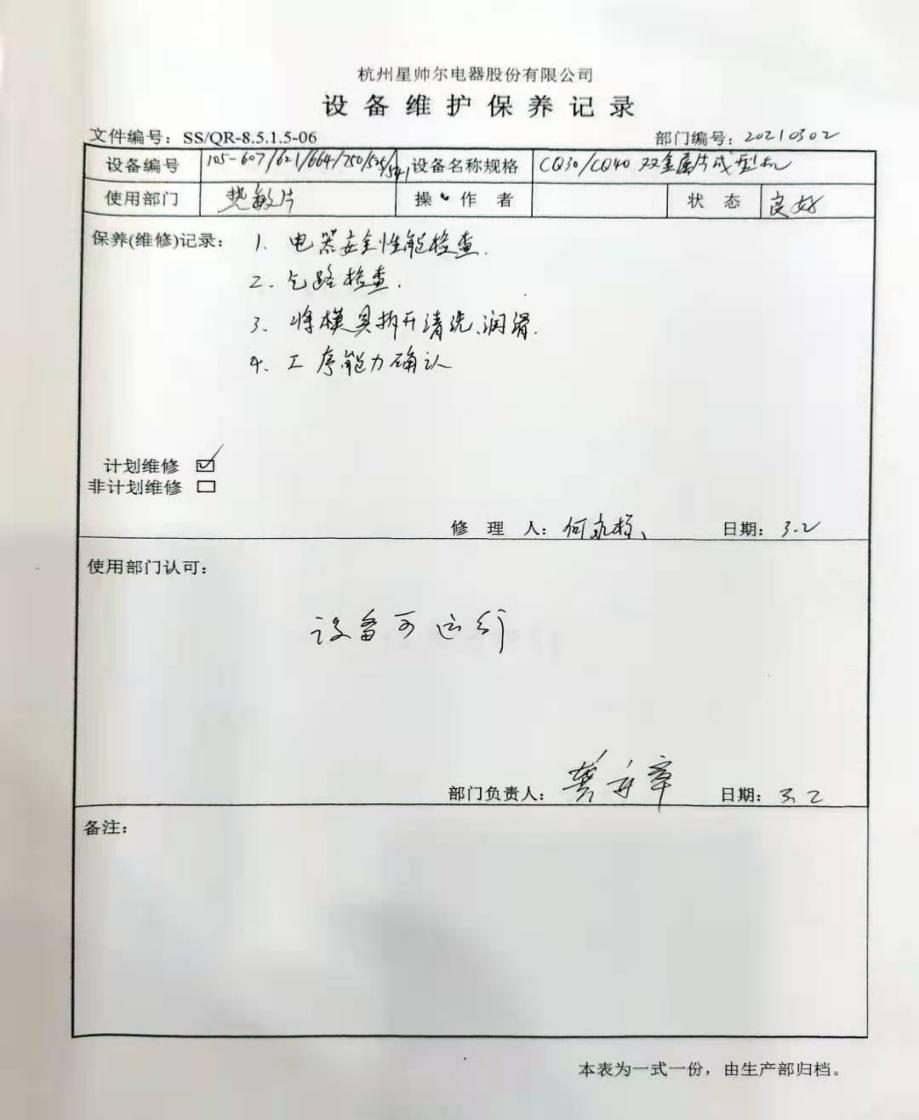 杭州星帅尔电器股份有限公司
设备维护保养记录
文件编号：SS/QR-8.5.1.5-06 部门编号：20210302
设备编号 105-607/621/664/750/525/541 设备名称规格 CQ30/CQ40 双金属片成型机
使用部门 热敏片 操作者 状态 良好
保养(维修)记录： 1、电器安全性能检查.
2.气路检查.
3、将模具拆开清洗、润滑.
4、工序能力确认
计划维修 ☑
非计划维修 □
修理人：何 日期：3.2
使用部门认可：
设备可运行
部门负责人：龚 日期：3.2
备注：
本表为一式一份，由生产部归档。